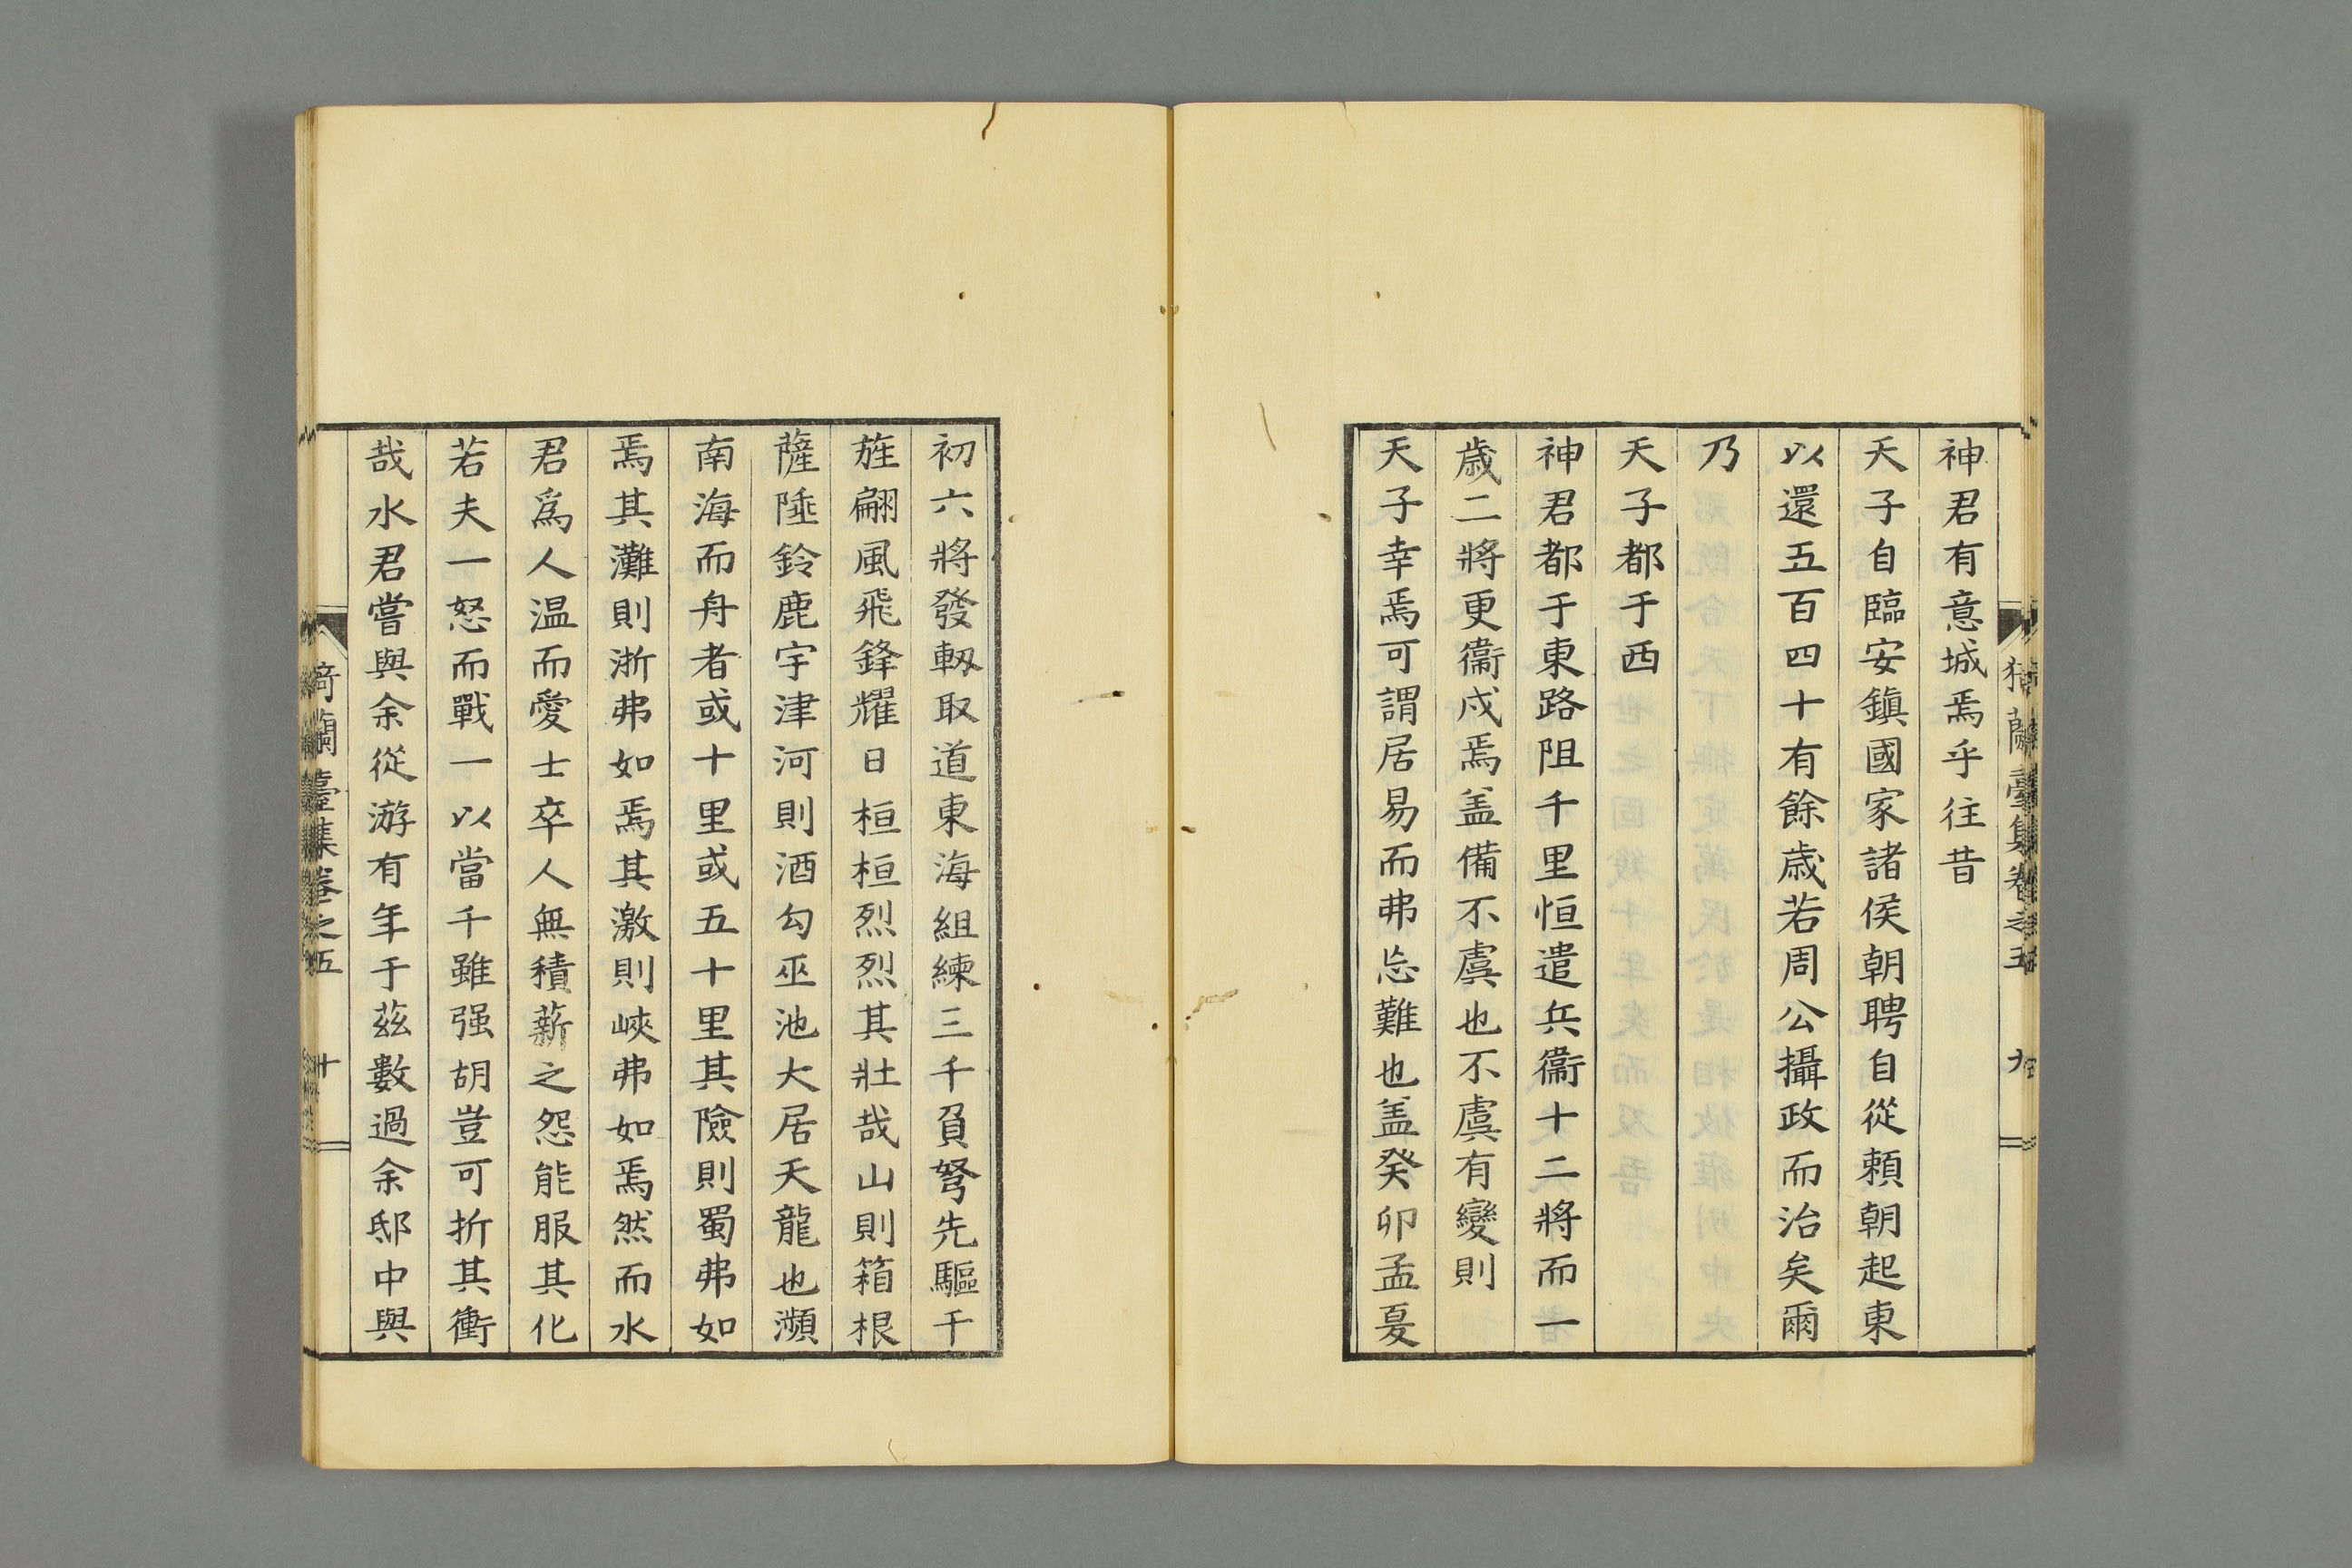 神君有意城焉乎往昔
天子自臨安鎮國家諸侯朝聘自從頼朝起東
以還五百四十有餘歳若周公攝政而治矣爾
乃
天子都于西
神君都于東路阻千里恒遣兵衞十二將而一
歳二將更衞戍焉盖備不虞也不虞有變則
天子幸焉可謂居易而弗忘難也盖癸卯孟夏
初六將發軔取道東海組練三千負弩先驅千
旌翩風飛鋒耀日桓桓烈烈其壯哉山則箱根
薩陲鈴鹿宇津河則酒勾巫池大居天龍也瀕
南海而舟者或十里或五十里其險則蜀弗如
焉其灘則浙弗如焉其激則峽弗如焉然而水
君爲人温而愛士卒人無積薪之怨能服其化
若夫一怒而戰一以當千雖强胡豈可折其衝
哉水君嘗與余從游有年于茲數過余邸中與
猗蘭臺集卷之五 九
猗蘭臺集卷之五 十